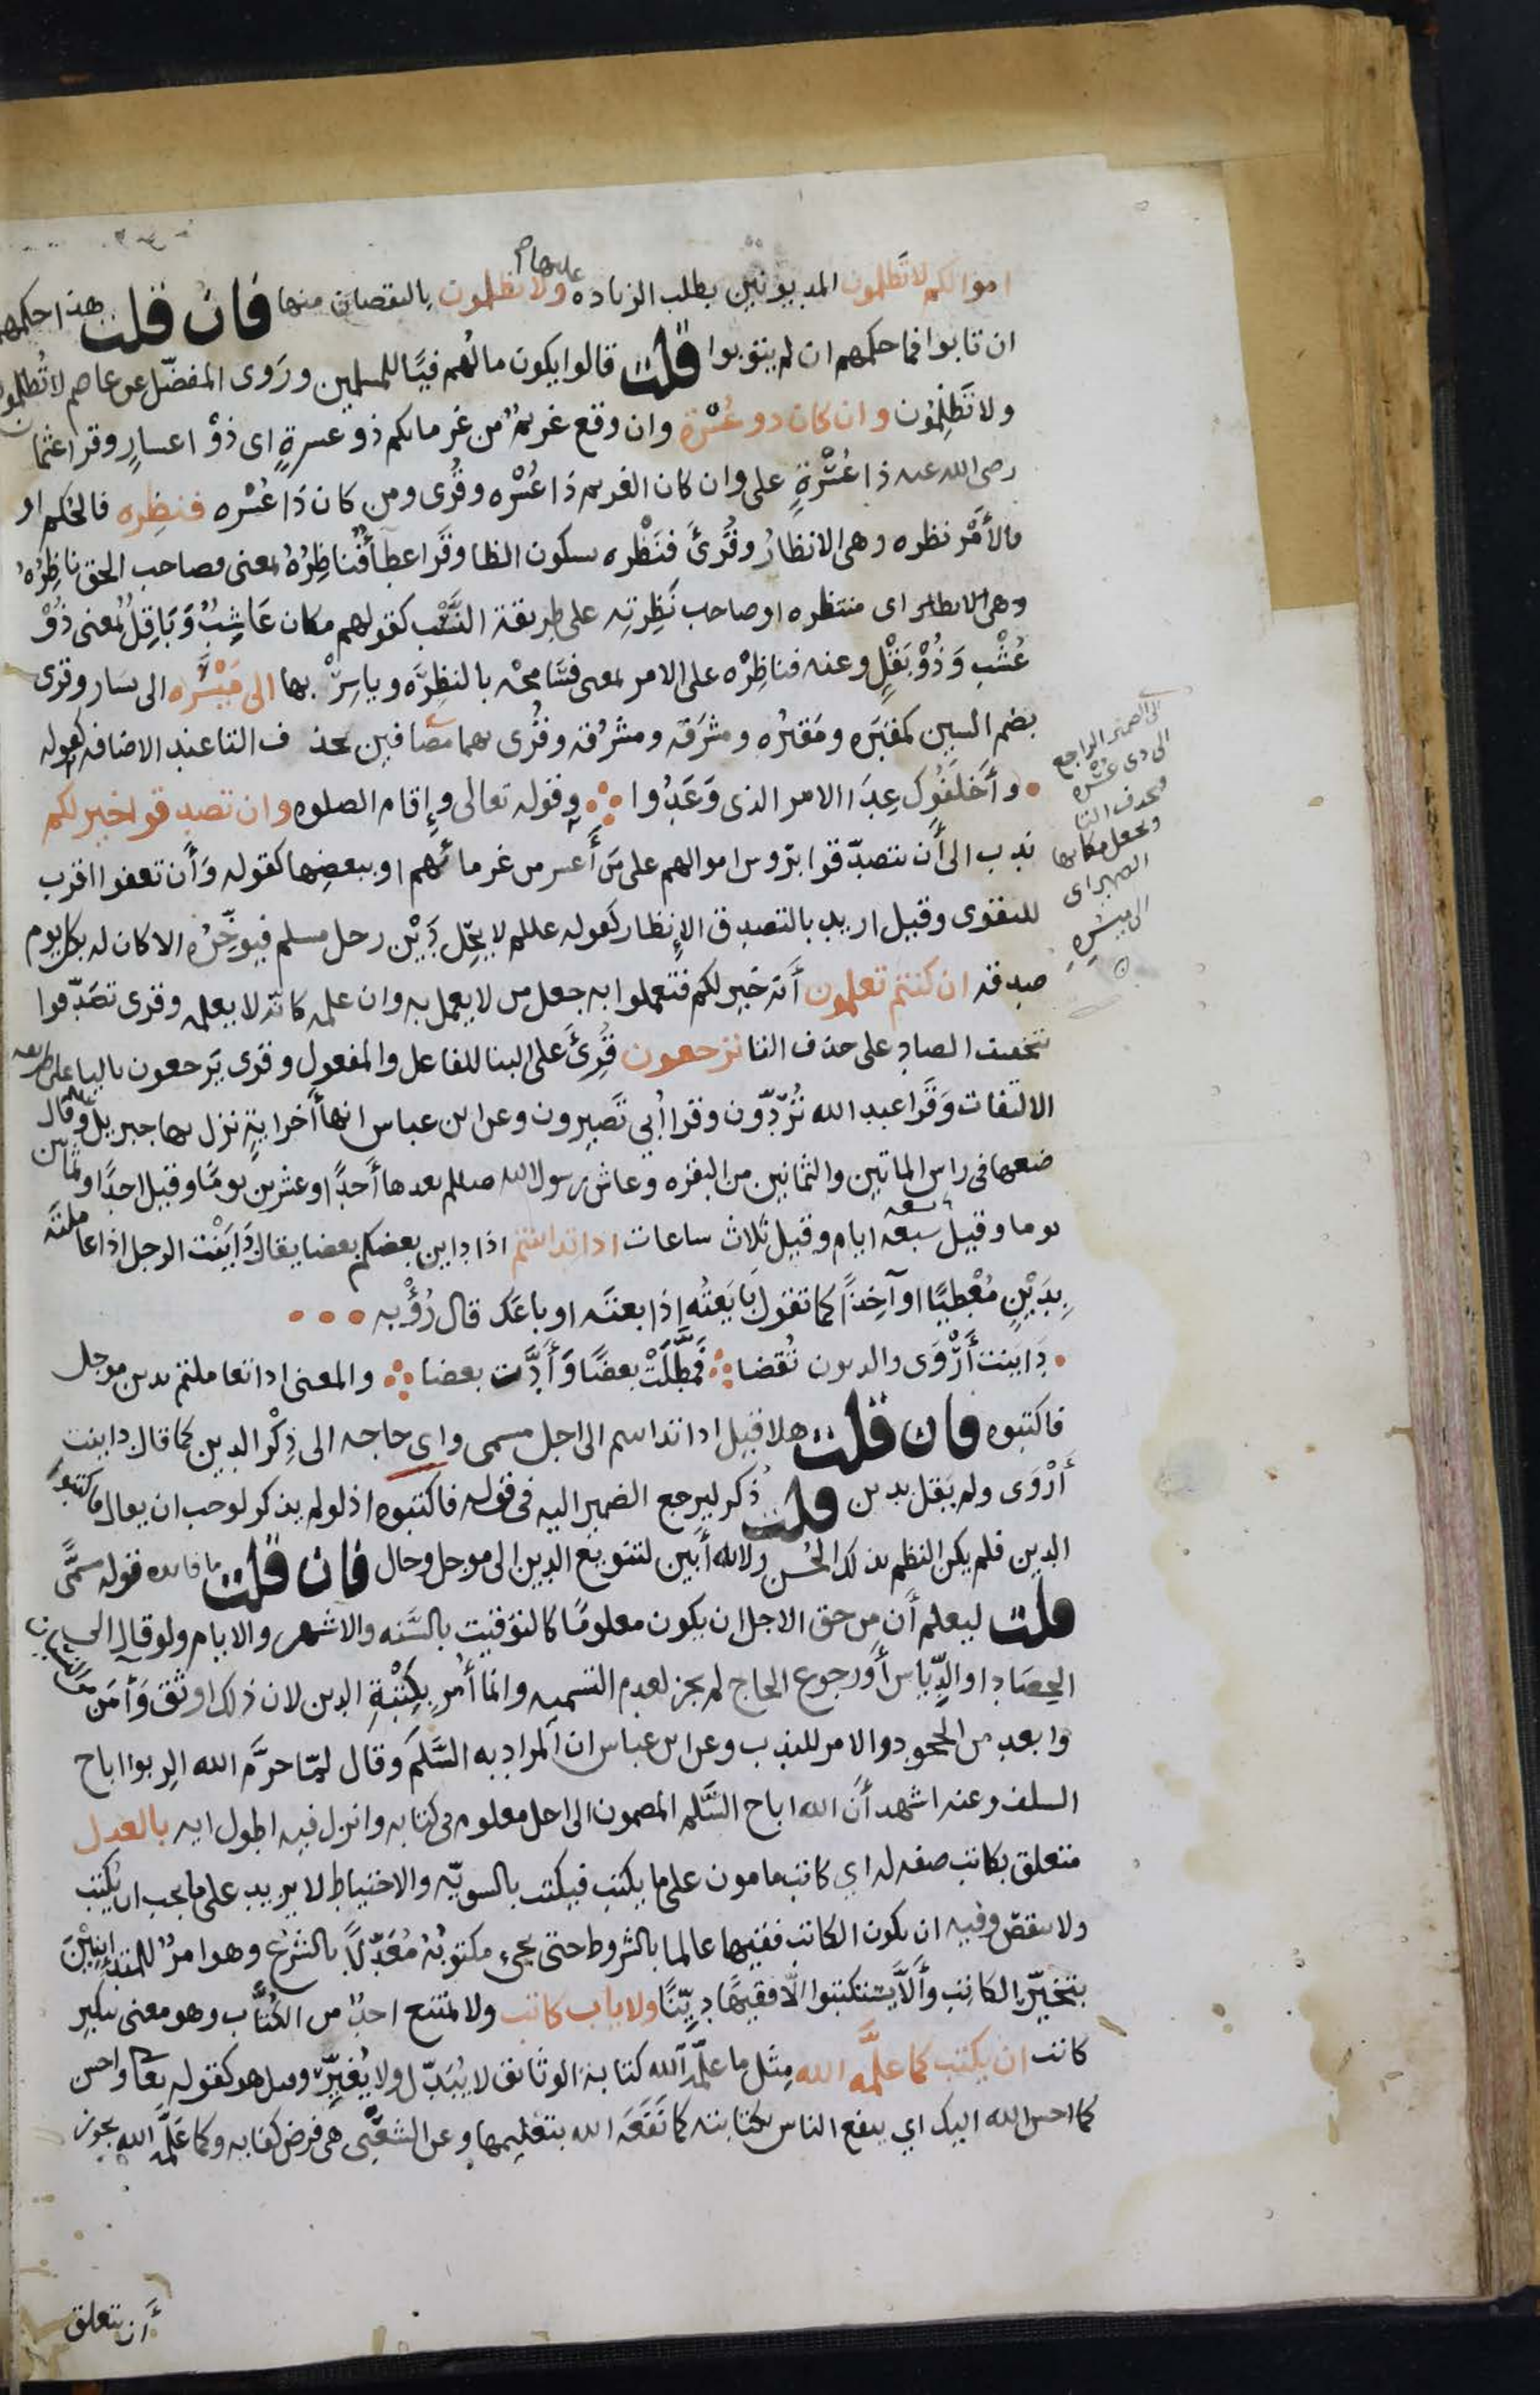 اموالكم لا تَظلمون المديونين بطلب الزياده عليها ولا تظلمون بالنقصان منها فان قلت هذا حكمهم
ان تابوا فما حكمهم ان لم يتوبوا قلت قالوا يكون مالهم فيًا للمسلمين ورَوى المفضّل عن عاصم لا تُظلمون
ولا تَظلِمُون وان كان ذو عُسْرة وان وقع غريمٌ من غرمايكم ذو عسرةٍ اى ذوْ اعسارٍ وقرا عثمان
رضى الله عنه ذا عُسْرةٍ على وان كان الغريم ذا عُسْره وقُرى ومن كان ذا عُسْره فنظِره فالحكم او
فالأَمْر نظره وهى الانظارُ وقُرئَ فنَظْره بسكون الظا وقَرا عطأٌ فناظِرُهُ بمعنى فصاحب الحق ناظِرُهُ
وهى الانظار اى منتظره او صاحب نَظِرتِه على طريقة النَّسب كقولهم مكان عَاشِبٌ وَبَاقِلٌ بمعنى ذُوْ
عُشْبٍ وَذُوْ بَقْلٍ وعنه فناظِرْه على الامر بمعنى فسَامحْه بالنظِرَه وياسِرْ بها الى مَيْسَره الى يسَار وقرى
بضم السين كمقبَره ومَقبُره ومشرَقه ومشرُقه وقُرى بهما مضافين بحذف التا عند الاضافه كقوله
وأَخلَفُوك عِدَا الامر الذى وَعَدُوا وقوله تعالى وإِقام الصلوه وان تصدقوا خير لكم
ندب الى أَن يتصدّقوا برُوس اموالهم على مَن أَعسر من غرمائهم او ببعضِها كقوله وَأن تعفوا اقرب
للتقوى وقيل اريد بالتصدق الإِنظار كقوله عللم لا يحِّل دَيْن رجل مسلم فيوخِّرُه الا كان له بكل يوم
صدقه ان كنتم تعلمون أَنّه خيرٌ لكم فتعملوا به جعل من لا يعمل به وان علمه كانّه لا يعلمه وقرى تصَدّقوا
بتخفيف الصاد على حذف التا ترجعون قُرِئَ على البنا للفاعل والمفعول وقرى يَرجعون باليا على طريقه
الالتفات وقَرا عبد الله تُرَدّون وقرا أُبي تَصيرون وعن ابن عباس انها أَخر ايةٍ نزل بها جبريل وقال
ضعها فى راس الماتين والثمانين من البقره وعاش رسول الله صللم بعدها أَحدًا وعشرين يومًا وقيل احدًا وثمانين
يوما وقيل سبعه ايام وقيل ثلاث ساعات اذا تداينتم اذا داين بعضكم بعضا يقال دَايَنْت الرجل اذا عاملته
بِدَيْنٍ مُعْطيًا او آخِذًا كما تقول بَايَعتُه اذا بعتَه او باعَك قال رُؤْبه
دَايَنت أَرْوَى والديون تُقضا فَمطَلَتْ بعضًا وَأَدَّت بعضا والمعنى اذا تعاملتم بدين موجل
فاكتبوه فان قلت هلا قيل اذا تداينتم الى اجل مسمى واى حاجه الى ذِكْر الدين كما قال داينت
أَرْوَى ولم يَقل بدين قلت ذُكر ليرجع الضمير اليه فى قوله فاكتبوه اذ لو لم يذكر لوجب ان يقال فاكتبوا
الدين فلم يكن النظم بذلك الحُسن ولانه أَبين لتنويع الدين الى موجل وحال فان قلت ما فايده قوله مسمًّى
قلت ليعلم أَن من حق الاجل ان يكون معلومًا كالتوقيت بالسَّنه والاشهر والايام ولو قال الى
الحِصَاد او الدِّياس أَو رجوع الحاج لم يجز لعدم التسميه وانما أُمر بِكِتْبةِ الدين لان ذلك اوثق وَأَمَن من النسيان
وابعد من الجحود والامر للندب وعن ابن عباس ان المراد به السَّلَم وقال لمّا حرَّم الله الربوا اباح
السلف وعنه اشهد أَن الله اباح السَّلم المضمون الى اجل معلوم فى كتابه وانزل فيه اطول ايه بالعدل
متعلق بكاتب صفه له اي كاتب مامون على ما يكتب فيكتب بالسويّه والاحتياط لا يزيد على ما يجب ان يكتب
ولا ينقص وفيه ان يكون الكاتب فقيها عالما بالشروط حتى يجىَ مكتوبُهُ مُعَدّلاً بالشرْع وهو امرٌ للمتداينِيْنَ
بتخيّر الكاتب وأَلاَّ يستكتبوا الاّ فقيهًا ديّنًا ولا ياب كاتب ولا يمتنع احدٌ من الكُتَّاب وهو معنى تنكير
كاتب ان يكتب كما علَّمه الله مِثل ما علّمه الله كتابة الوثائق لا يُبَدّل ولا يُغيِّر وقيل هو كقوله تعا واحسن
كما احسن الله اليك اي ينفع الناس بكتابته كما نَفَعَه الله بتعليمها وعن الشَّعْبى هى فرض كفايه وكما عَلّمه الله يجوز
أَن يتعلق
الى الضمير الراجع
الى ذى عُسْره
فحذف التا
وجعل مكانها
الضمير اى
الى ميسُرِهِ